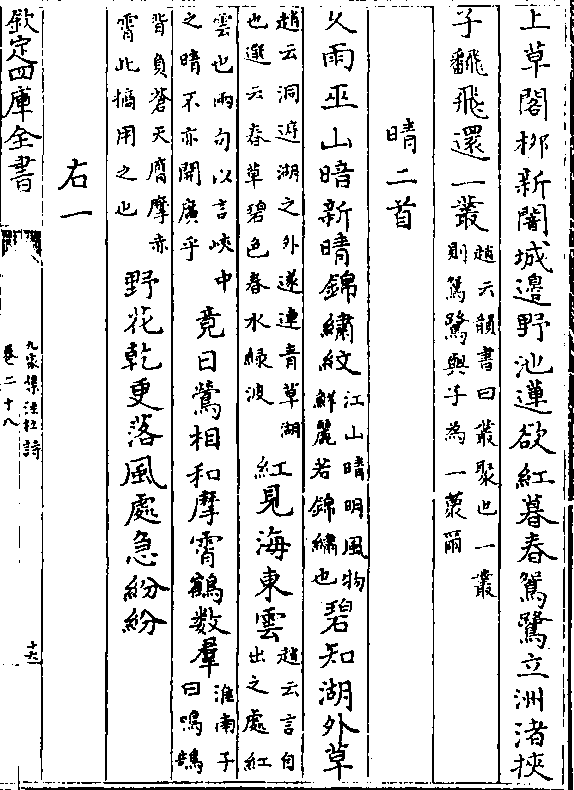 上草閣栁新闇城邊野池蓮欲紅暮春鴛鷺立洲渚挾
子翻飛還一叢
趙云韻書曰叢聚也一叢
則鴛鷺與子為一叢爾
晴二首
久雨巫山暗新晴錦繡紋
江山晴明風物
鮮麗若錦繡也
碧知湖外草
趙云洞庭湖之外遂連青草湖
也選云春草碧色春水緑波
紅見海東雲
趙云言自
出之處紅
雲也兩句以言峽中
之晴不亦開廣乎
竟日鶯相和摩霄鶴數羣
淮南子
曰鳴鵠
背負蒼天膺摩赤
霄此摘用之也
野花乾更落風處急紛紛
右一
欽定四庫全書
九家集注杜詩
卷二十八